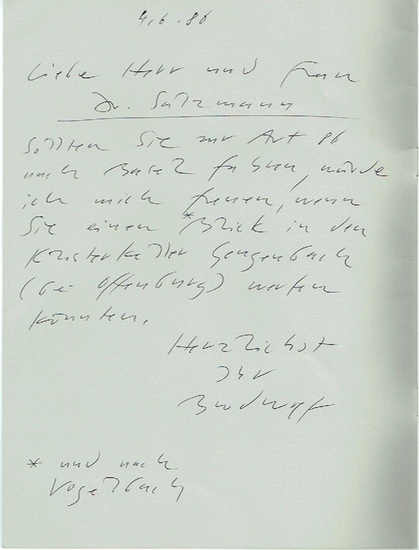 4.6.86
Liebe Herr und Frau
Dr. Saltzmann
Sollten Sie zur Art 86
nach Basel fahren, würde
ich mich freuen, wenn
Sie einen *Blick in den
Klosterkeller Gengenbach
(bei Offenburg) werfen
könnten.
Herzlichst
Ihr
Brodwolf
* und nach
Vogelbach